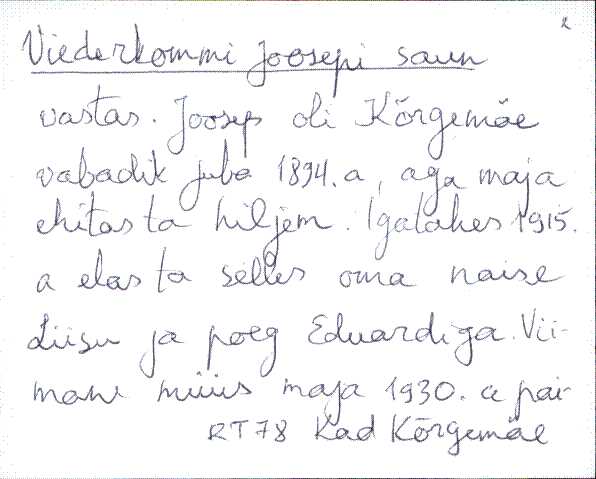 2
Viederkommi Joosepi saun
vastas. Joosep oli Kõrgemäe
vabadik juba 1894. a, aga maja
ehitas ta hiljem. Igatahes 1915.
a elas ta selles oma naise
Liisu ja poeg Eduardiga. Vii-
mane müüs maja 1930. a pai-
RT78 Kad Kõrgemäe